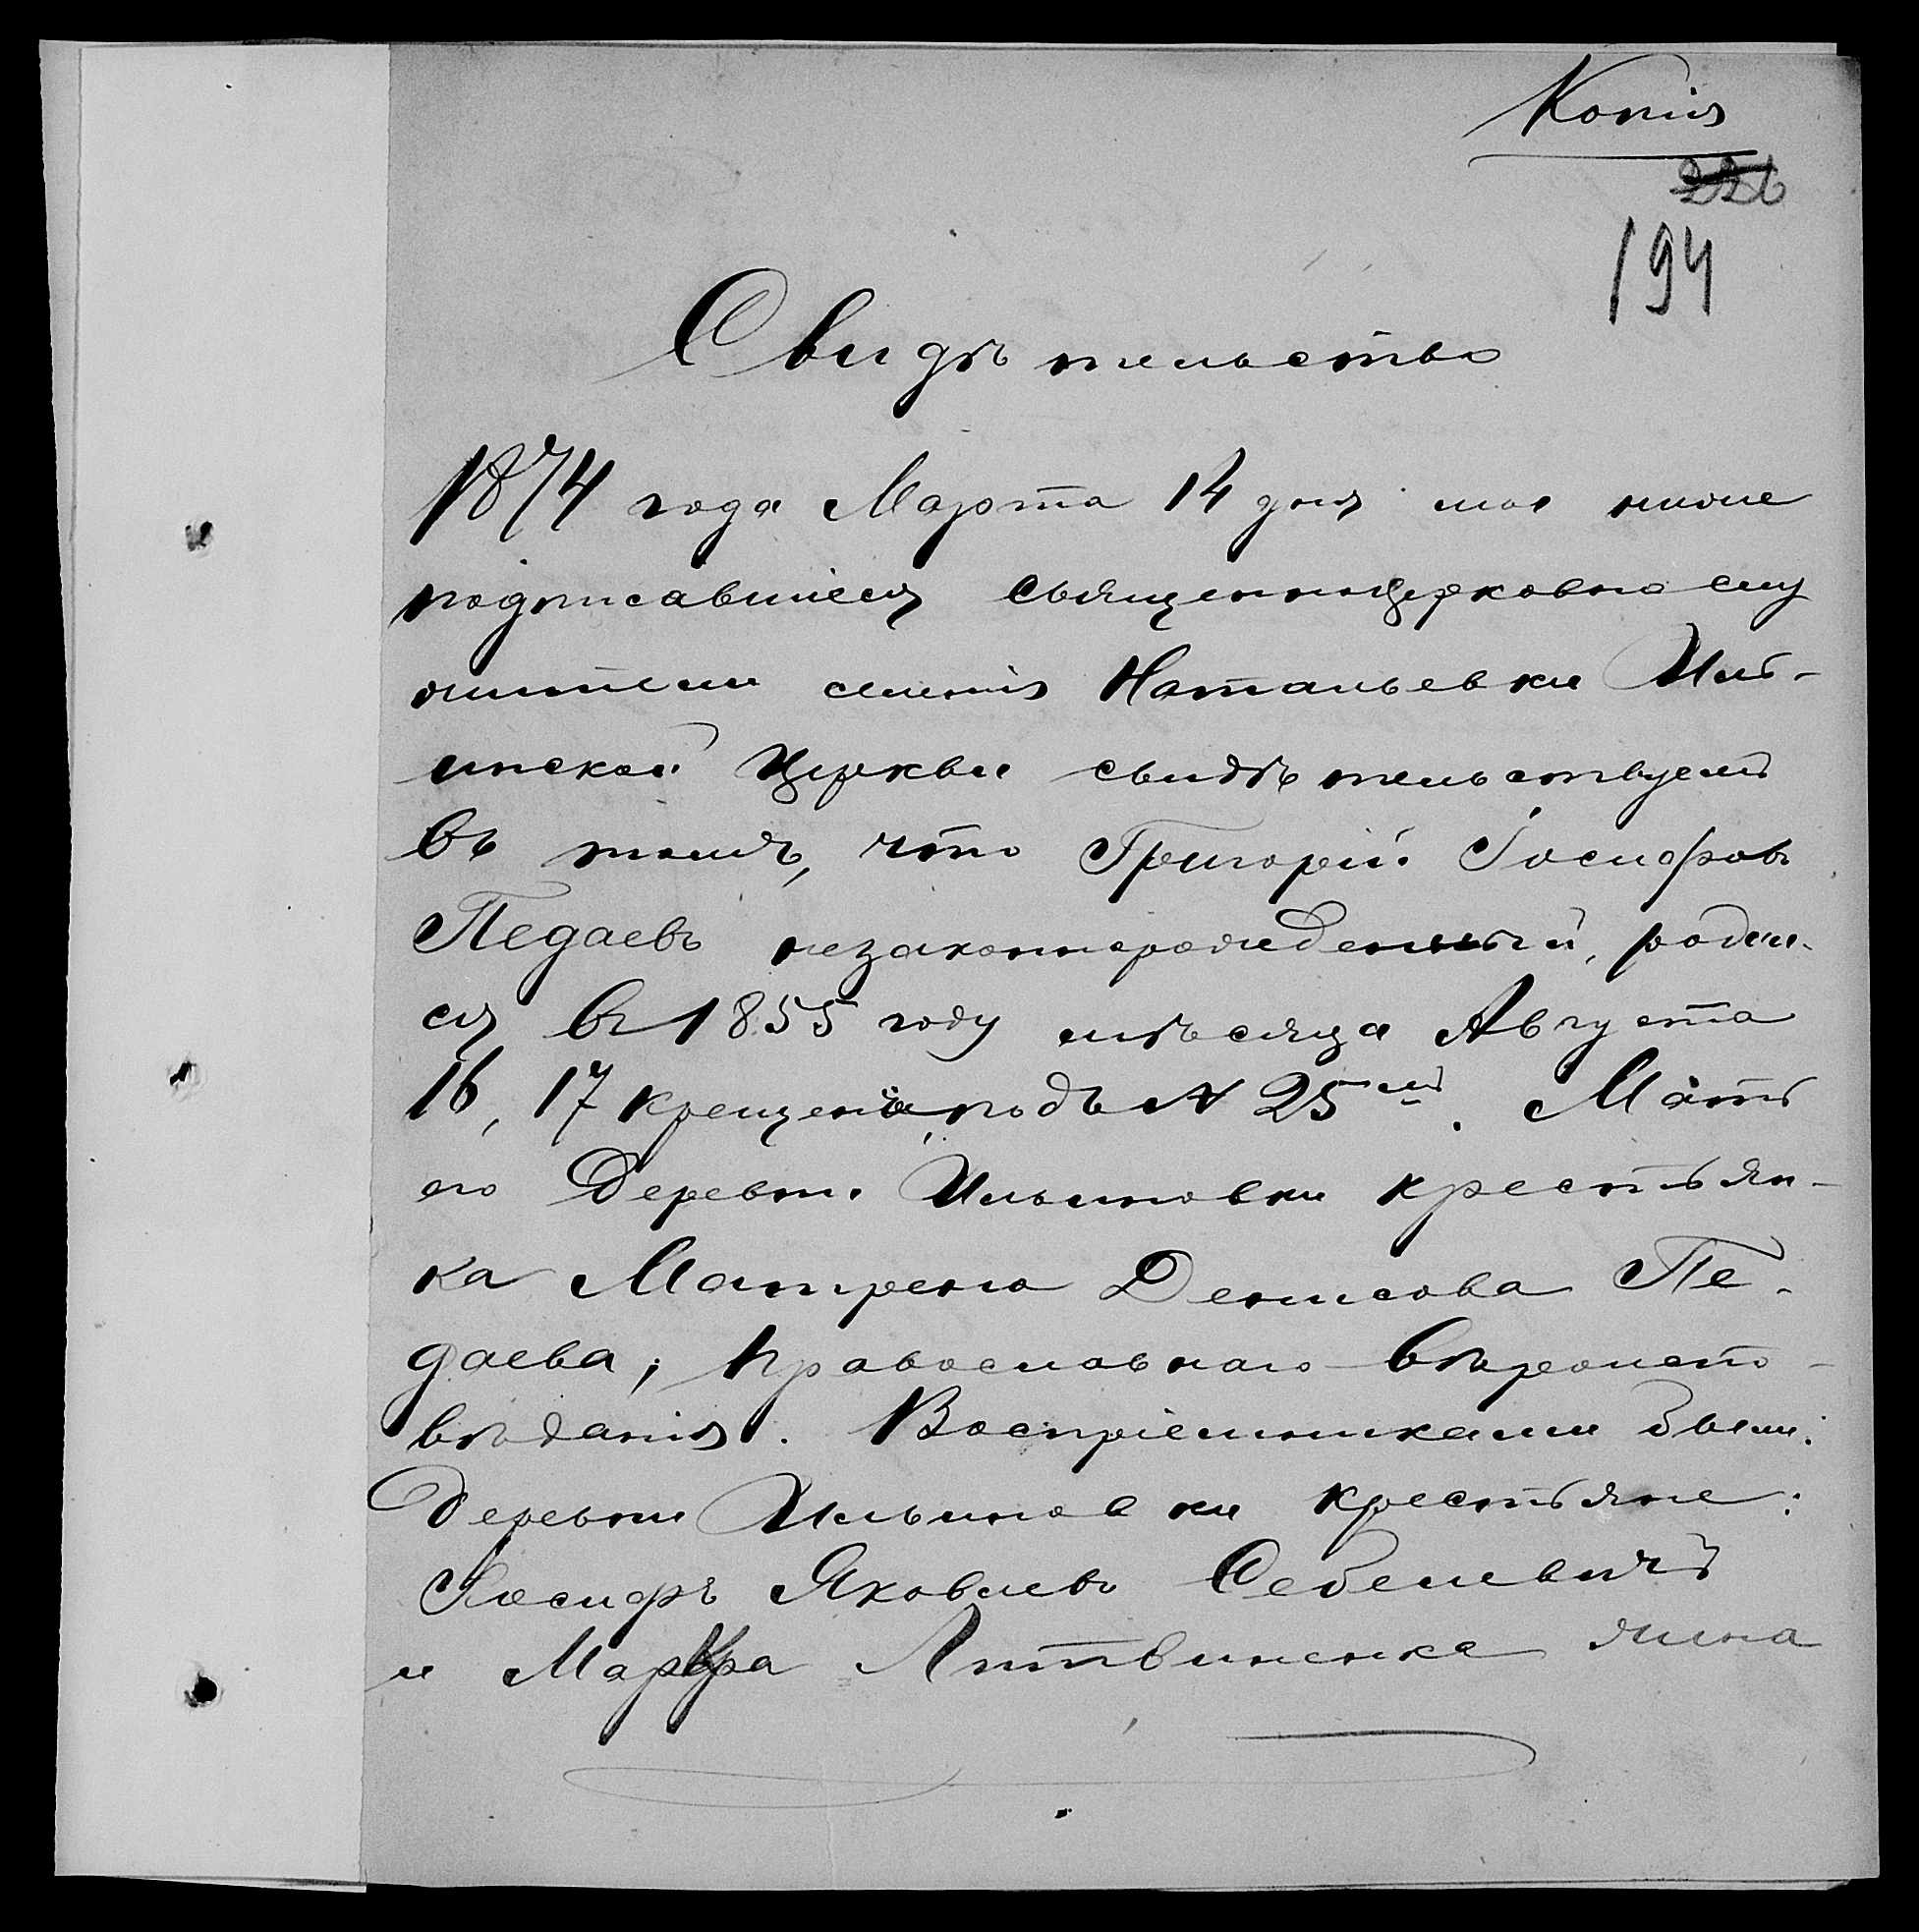 Копія
226
194
Свидѣтельство
1874 года Марта 14 дня мы ниже
подписавшіеся священноцерковно слу
жители селенія Натальевки Иль-
инской Церкви свидѣтельствуемъ
въ томъ, что Григорій Іосифовъ
Педаевъ незаконнорожденный, родил-
ся въ 1855 году мѣсяца Августа
16, 17 крещенъ подъ № 25мъ. Мать
его Деревни Ильиновки крестьян-
ка Матрена Денисова Пе-
даева, православнаго вѣроиспо-
вѣданія. Воспріемниками были:
Деревни Ильиновки крестьяне:
Іосифъ Яковлевъ
и Марфа Литвиненка